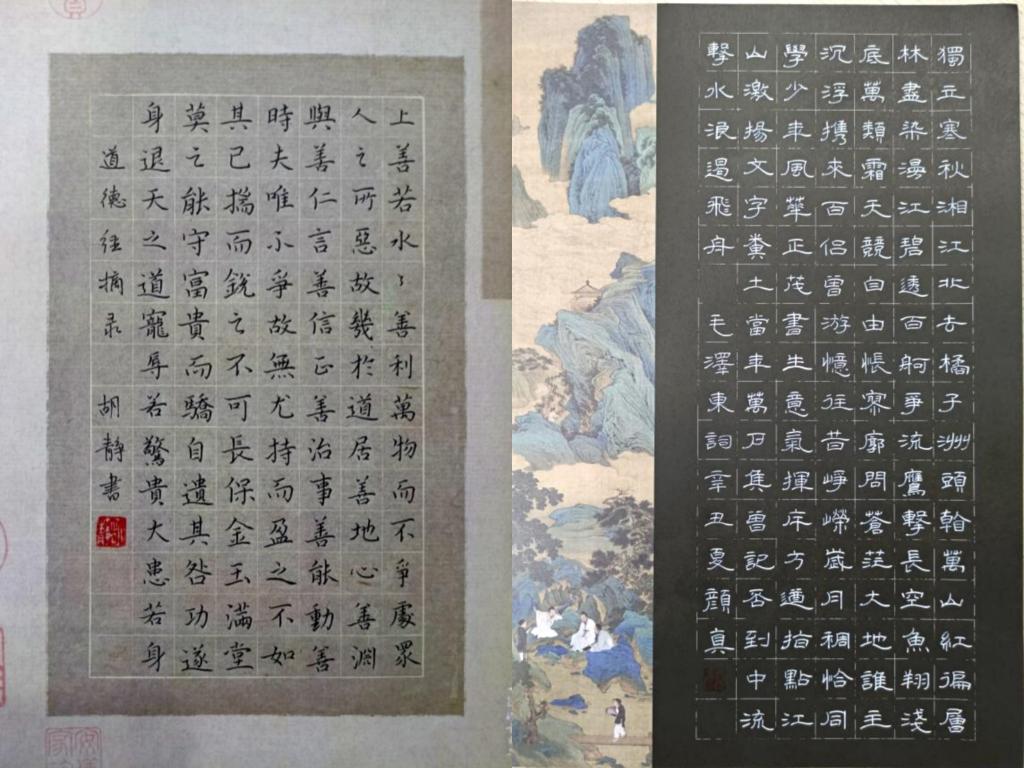 上善若水〻善利萬物而不爭處眾
人之所惡故幾於道居善地心善淵
與善仁言善信正善治事善能動善
時夫唯不爭故無尤持而盈之不如
其已揣而銳之不可長保金玉滿堂
莫之能守富貴而驕自遺其咎功遂
身退天之道寵辱若驚貴大患若身
道德经摘录 胡靜書
獨立寒秋湘江北去橘子洲頭看萬山紅徧層
林盡染漫江碧透百舸爭流鷹擊長空魚翔淺
底萬類霜天競自由悵寥廓問蒼茫大地誰主
沉浮攜來百侶曾游憶往昔崢嶸歲月稠恰同
學少年風華正茂書生意氣揮斥方遒指點江
山激揚文字糞土當年萬戶侯曾記否到中流
擊水浪遏飛舟 毛澤東詞辛丑夏顏真